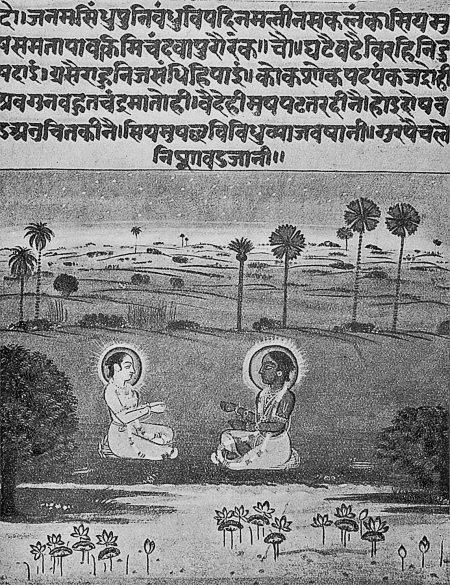 दो०।जनमसिंधुपुनिवंधुविषदिनमलीनसकलंक।सियमु
षसमतापावकिमिचंदवापुरोरंक॥चौ॥घटैवढैविरहिनिदु
षदाई।ग्रसैराहुनिजसंधिहिपाई।कोकशोकप्रदपंकजद्रोही
अवगुनवहुतचंद्रमातोही।वैदेहीमुषपटतरदीनै।होइदोषव
डअनुचितकीनै।सियमुषछविविधुव्याजवषानी।गुरपैचले
निशावडजानी॥